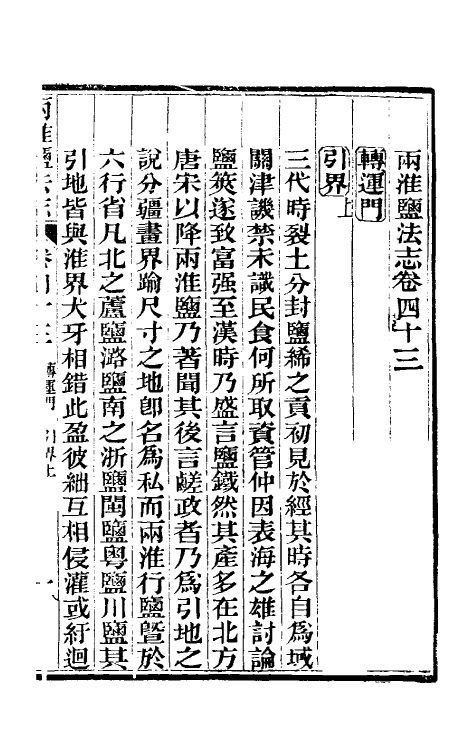 兩淮鹽法志卷四十三
轉運門
引界上
三代時裂土分封鹽絺之貢初見於經其時各自爲域
關津譏禁未識民食何所取資管仲因表海之雄討論
鹽筴遂致富强至漢時乃盛言鹽鐵然其產多在北方
唐宋以降兩淮鹽乃著聞其後言鹺政者乃爲引地之
說分疆畫界踰尺寸之地卽名爲私而兩淮行鹽曁於
六行省凡北之蘆鹽潞鹽南之浙鹽閩鹽粤鹽川鹽其
引地皆與淮界犬牙相錯此盈彼絀互相侵灌或紆迴
兩淮鹽法志 卷四十三 轉運門 引界上 一